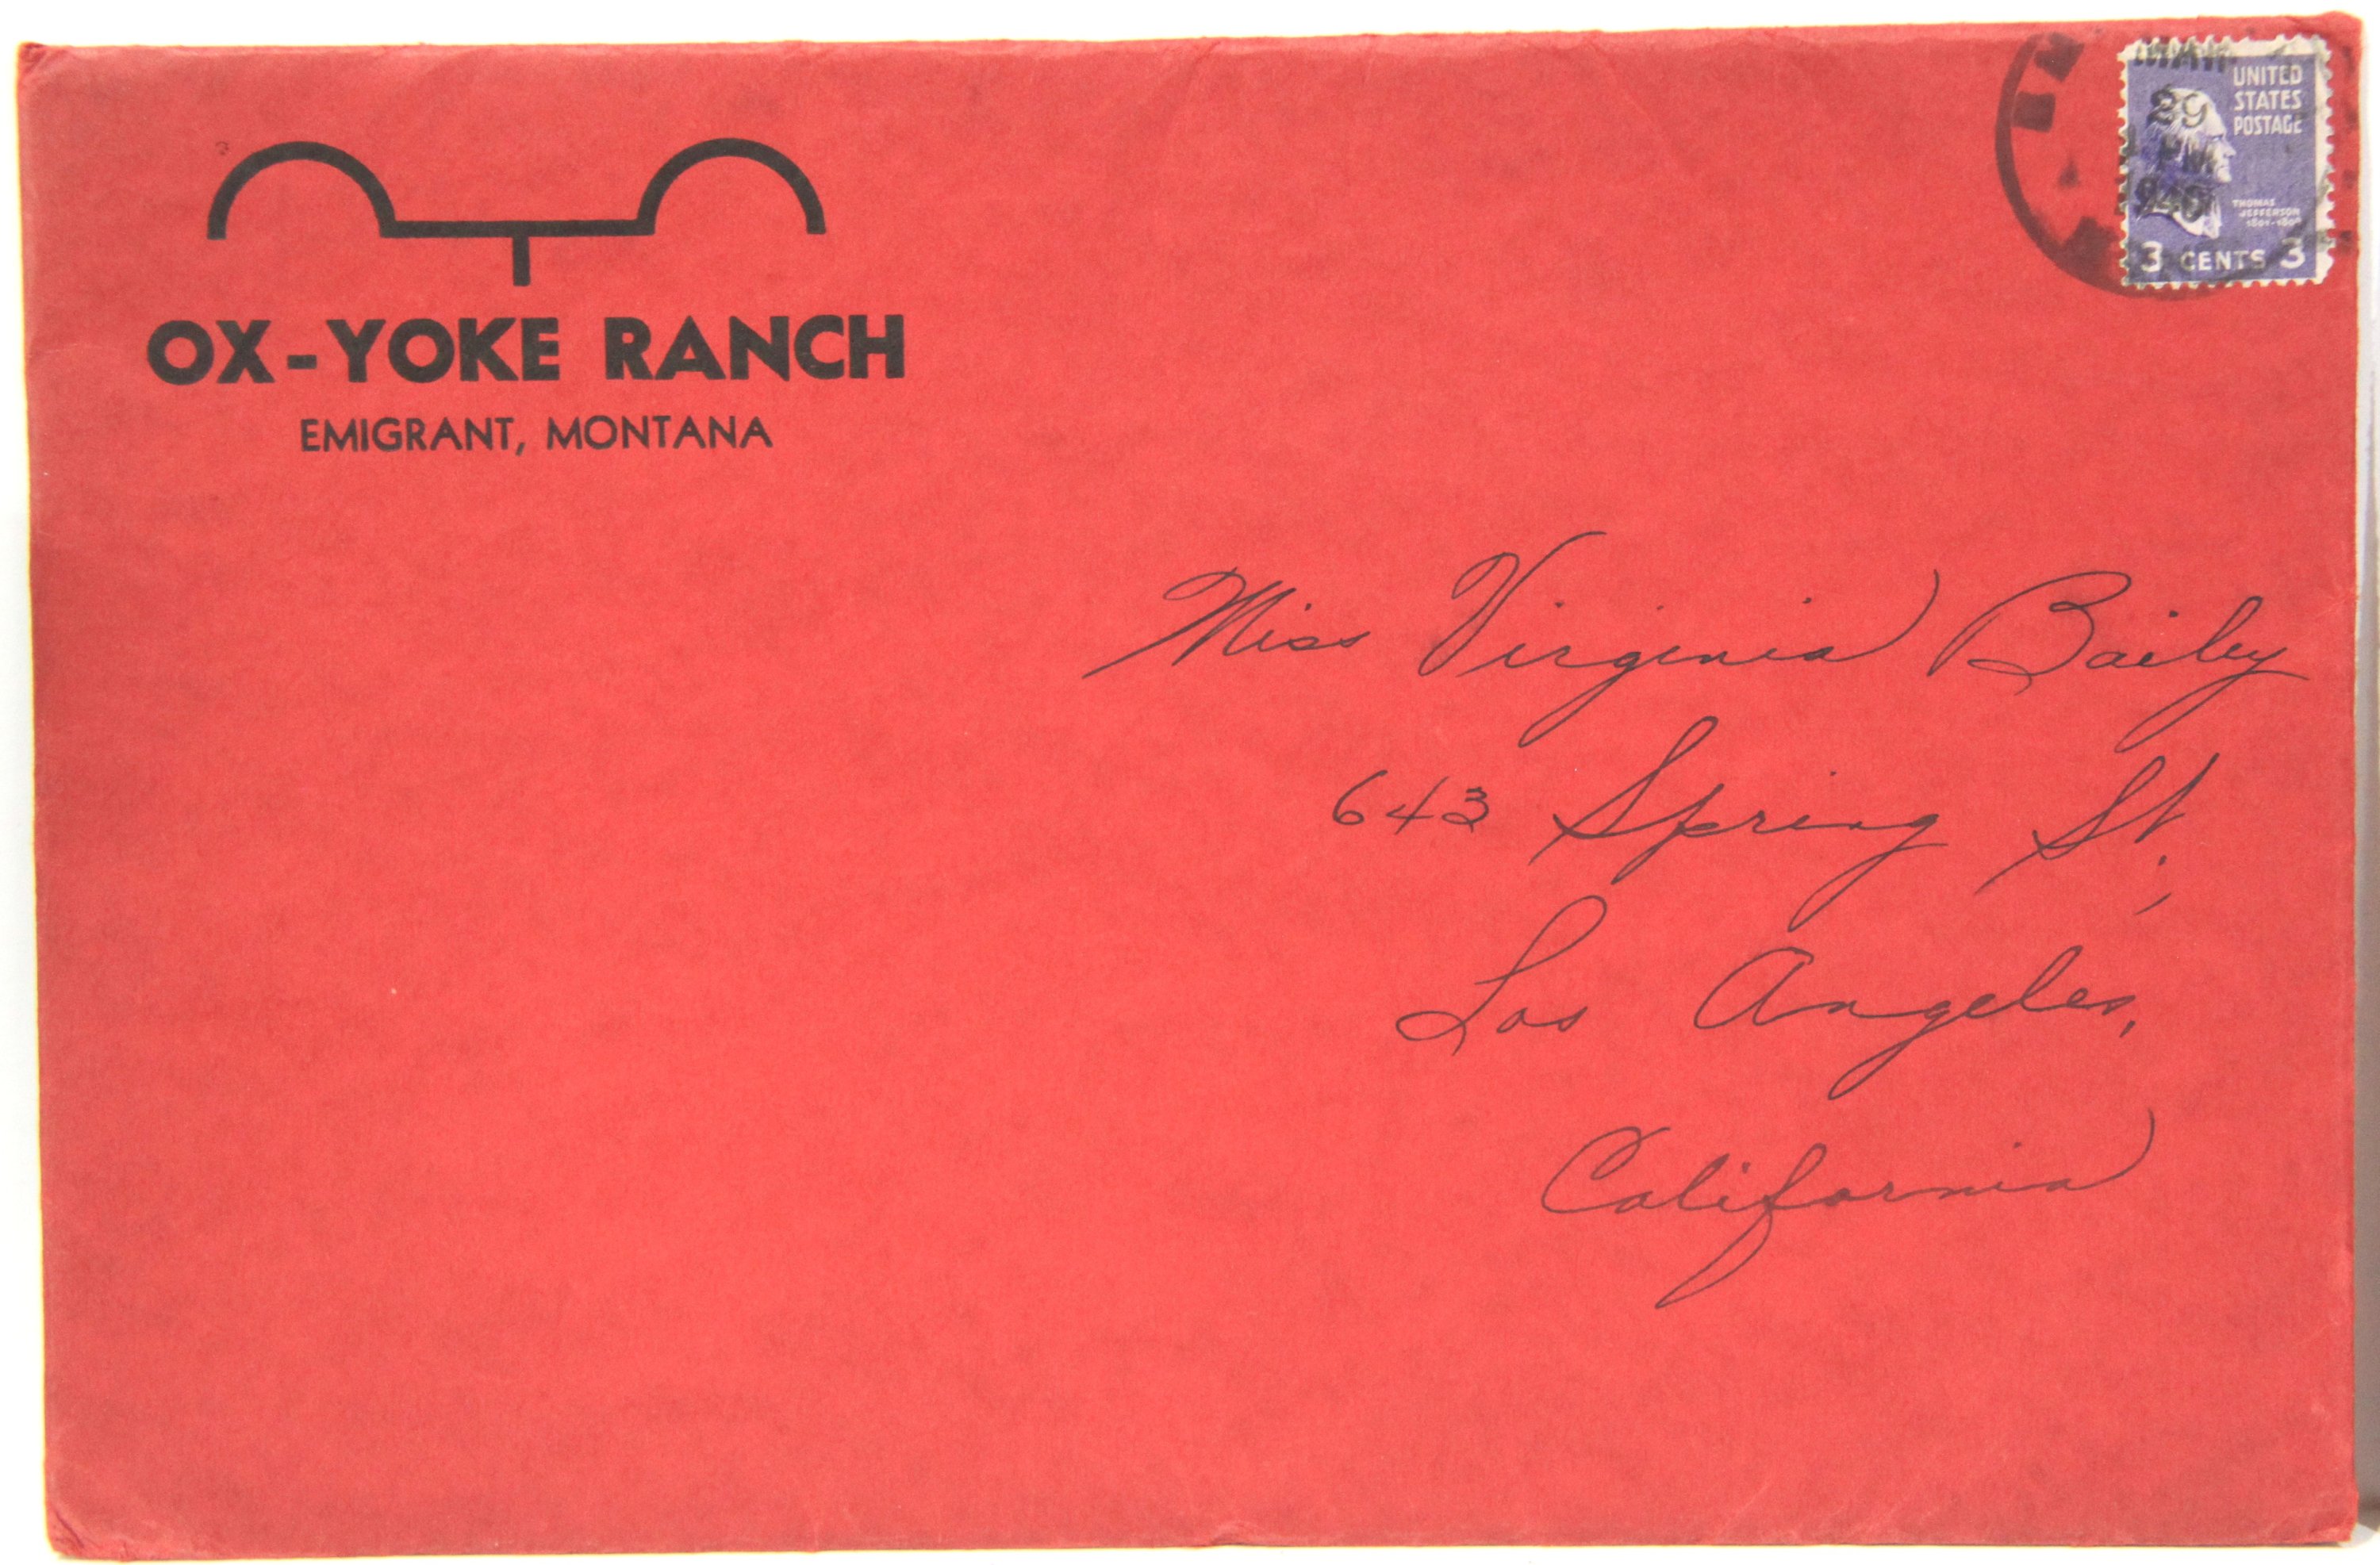 OX-YOKE RANCH
EMIGRANT, MONTANA
UNITED
STATES
POSTAGE
THOMAS
JEFFERSON
3 CENTS 3
MAR
29
PM
1940
Miss Virginia Bailey
643 Spring St.,
Los Angeles,
California